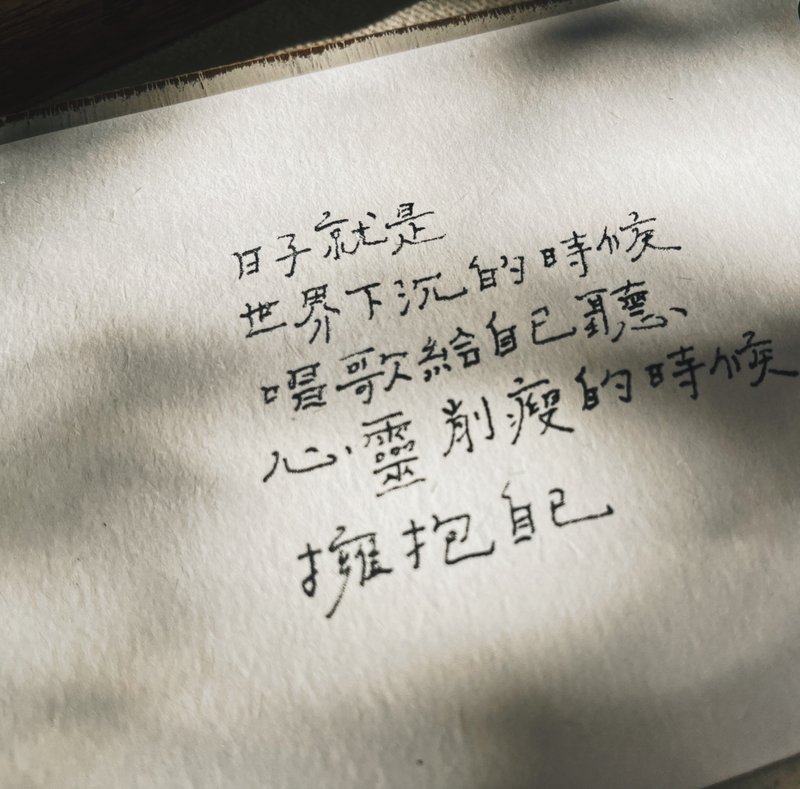 日子就是
世界下沉的時候
唱歌給自己聽
心靈削瘦的時候
擁抱自己